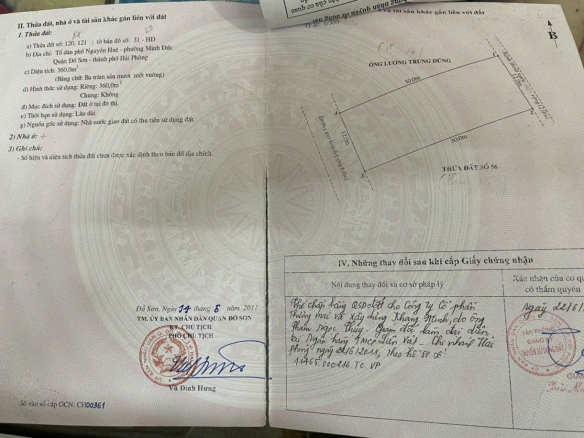 II. Thửa đất, nhà ở và tài sản khác gắn liền với đất
1. Thửa đất:
a) Thửa đất số: 120, 121 ; tờ bản đồ số: 31 - HĐ
b) Địa chỉ: Tổ dân phố Nguyễn Huệ - phường Minh Đức
Quận Đồ Sơn - thành phố Hải Phòng
c) Diện tích: 360,0m²
(Bằng chữ: Ba trăm sáu mươi mét vuông)
d) Hình thức sử dụng: Riêng: 360,0m²
Chung: Không
đ) Mục đích sử dụng: Đất ở tại đô thị.
e) Thời hạn sử dụng: Lâu dài
g) Nguồn gốc sử dụng: Nhà nước giao đất có thu tiền sử dụng đất.
2) Nhà ở: -/-
3) Ghi chú:
- Số hiệu và diện tích thửa đất chưa được xác định theo bản đồ địa chính.
Đồ Sơn, Ngày 14 tháng 6 năm 2011
TM. ỦY BAN NHÂN DÂN QUẬN ĐỒ SƠN
KT. CHỦ TỊCH
PHÓ CHỦ TỊCH
Vũ Đình Hưng
Số vào sổ cấp GCN: CH00361
tài sản khác gắn liền với đất
B
ÔNG LƯƠNG TRUNG DŨNG
30.0m
12.0m
30.0m
THỬA ĐẤT SỐ 56
IV. Những thay đổi sau khi cấp Giấy chứng nhận
Nội dung thay đổi và cơ sở pháp lý
Xác nhận của cơ qu
có thẩm quyền
Thế chấp bằng QSD đất cho Công ty Cổ phần
Thương mại và Xây dựng Khang Minh, do ông
Phạm Ngọc Thúy - Giám đốc làm đại diện
tại Ngân hàng TMCP Liên Việt - Chi nhánh Hải
Phòng ngày 22/6/2011, theo hồ sơ số:
TC. VP
Ngày 22/6/
VĂN PHÒNG
ĐĂNG